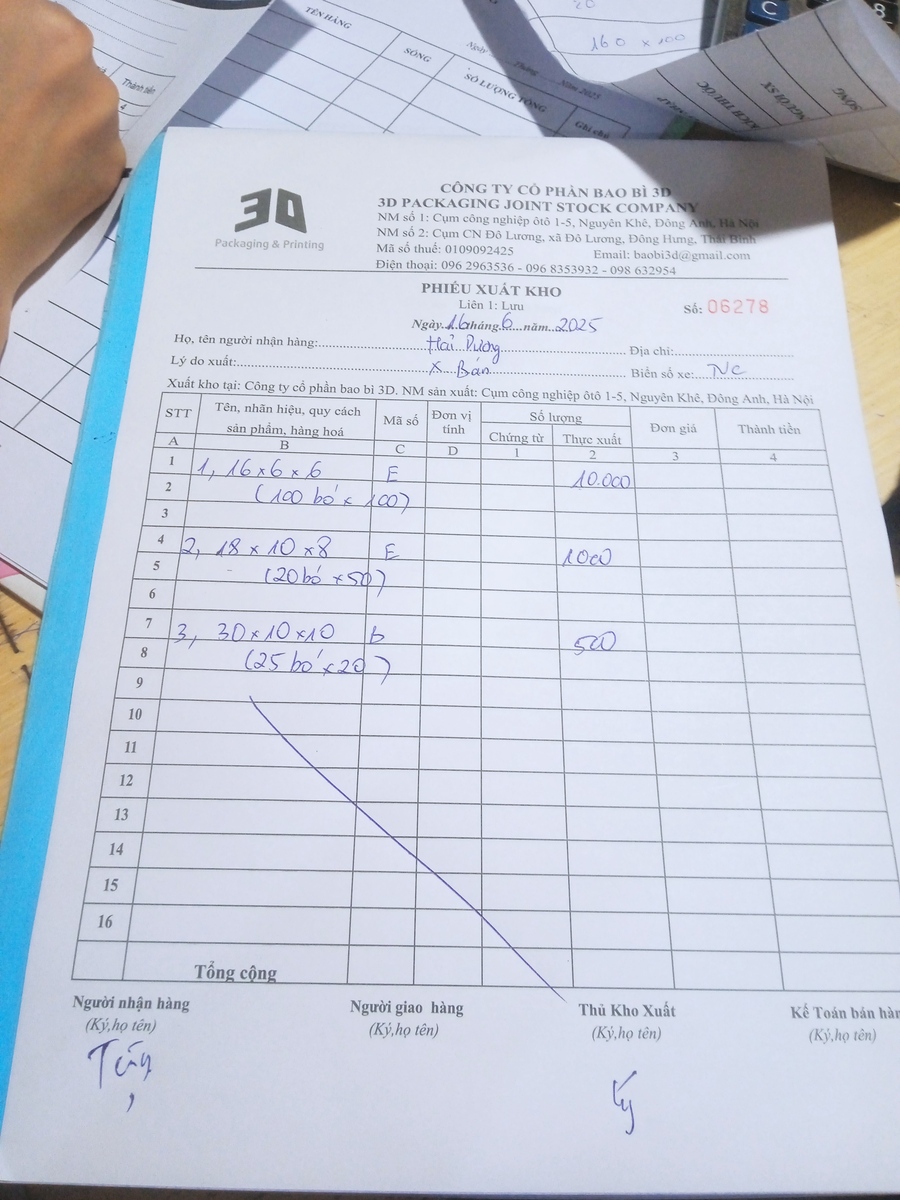 20
160 x 100
C
8
TÊN HÀNG
SÓNG
Ngày Tháng Năm 2025
SỐ LƯỢNG TỔNG
Ghi chú
Thành tiền
4
KÍCH THƯỚC
NGƯỜI SX
SÓNG
3D
Packaging & Printing
CÔNG TY CỔ PHẦN BAO BÌ 3D
3D PACKAGING JOINT STOCK COMPANY
NM số 1: Cụm công nghiệp ôtô 1-5, Nguyên Khê, Đông Anh, Hà Nội
NM số 2: Cụm CN Đô Lương, xã Đô Lương, Đông Hưng, Thái Bình
Mã số thuế: 0109092425 Email: baobi3d@gmail.com
Điện thoại: 096 2963536 - 096 8353932 - 098 632954
PHIẾU XUẤT KHO
Liên 1: Lưu
Số: 06278
Ngày 16 tháng 6 năm 2025
Họ, tên người nhận hàng: Hải Dương Địa chỉ:
Lý do xuất: X Bán Biển số xe: NC
Xuất kho tại: Công ty cổ phần bao bì 3D. NM sản xuất: Cụm công nghiệp ôtô 1-5, Nguyên Khê, Đông Anh, Hà Nội
STT Tên, nhãn hiệu, quy cách sản phẩm, hàng hoá Mã số Đơn vị tính Số lượng Đơn giá Thành tiền
Chứng từ Thực xuất
A B C D 1 2 3 4
1 1, 16 x 6 x 6 E 10.000
2 (100 bó x 100)
3
4 2, 18 x 10 x 8 E 1000
5 (20 bó x 50)
6
7 3, 30 x 10 x 10 b 500
8 (25 bó x 20)
9
10
11
12
13
14
15
16
Tổng cộng
Người nhận hàng Người giao hàng Thủ Kho Xuất Kế Toán bán hàn
(Ký,họ tên) (Ký,họ tên) (Ký,họ tên) (Ký,họ tên)